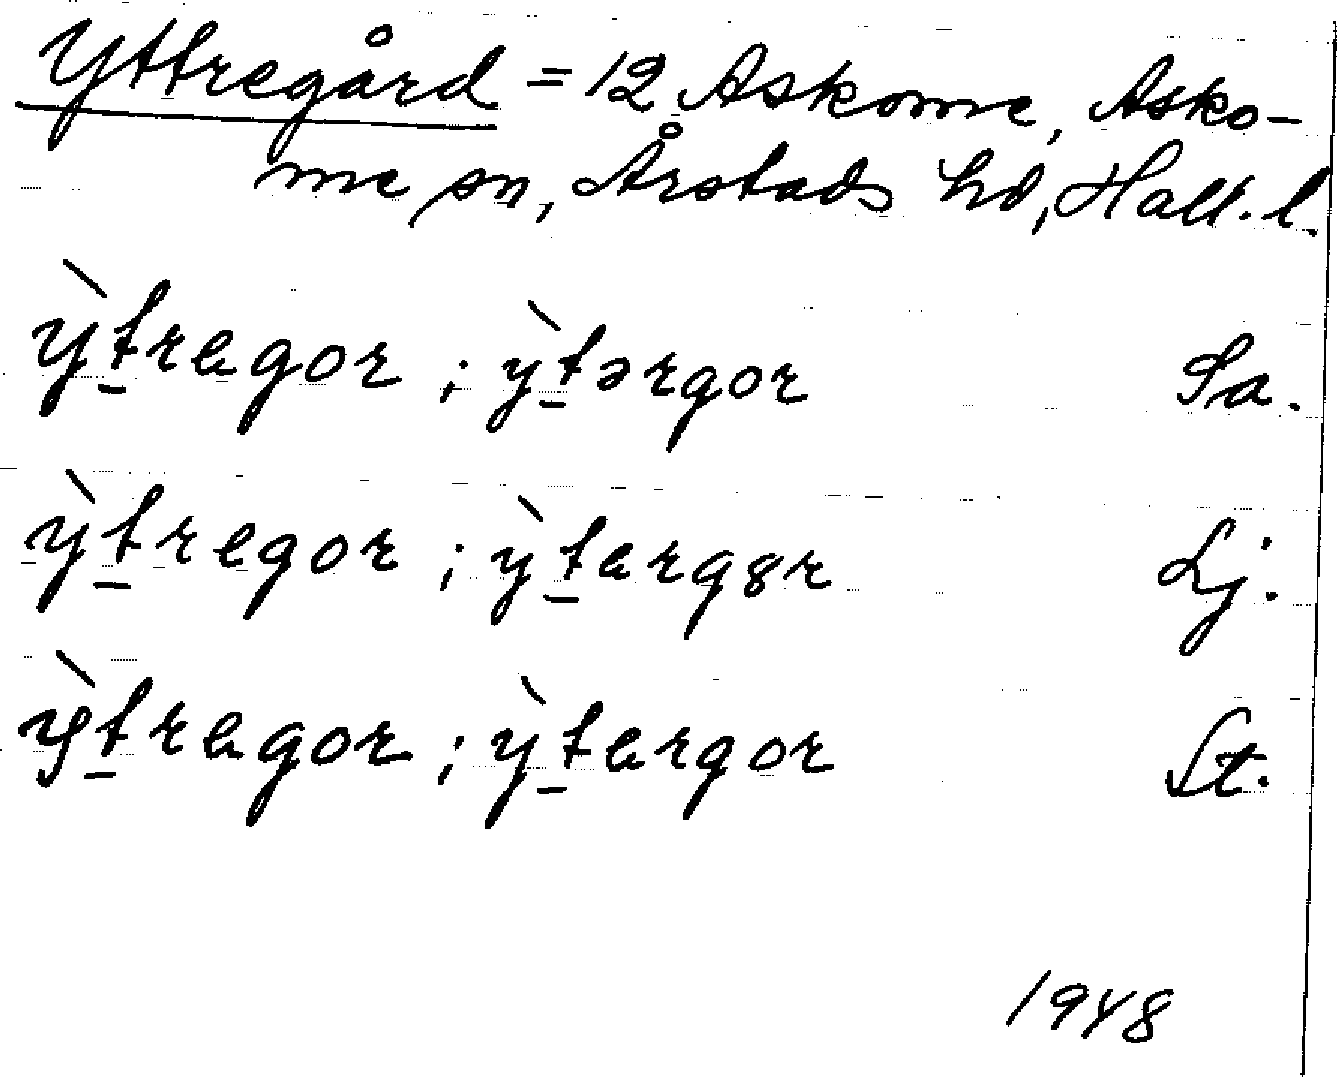 Yttregård = 12 Askome, Asko-
me sn, Årstads hd, Hall. l.
ỳt̲regor ; ỳt̲ərgor Sa.
ỳt̲regor ; ỳt̲erg8r Lj.
ỳt̲regor ; ỳt̲ergor St.
1948